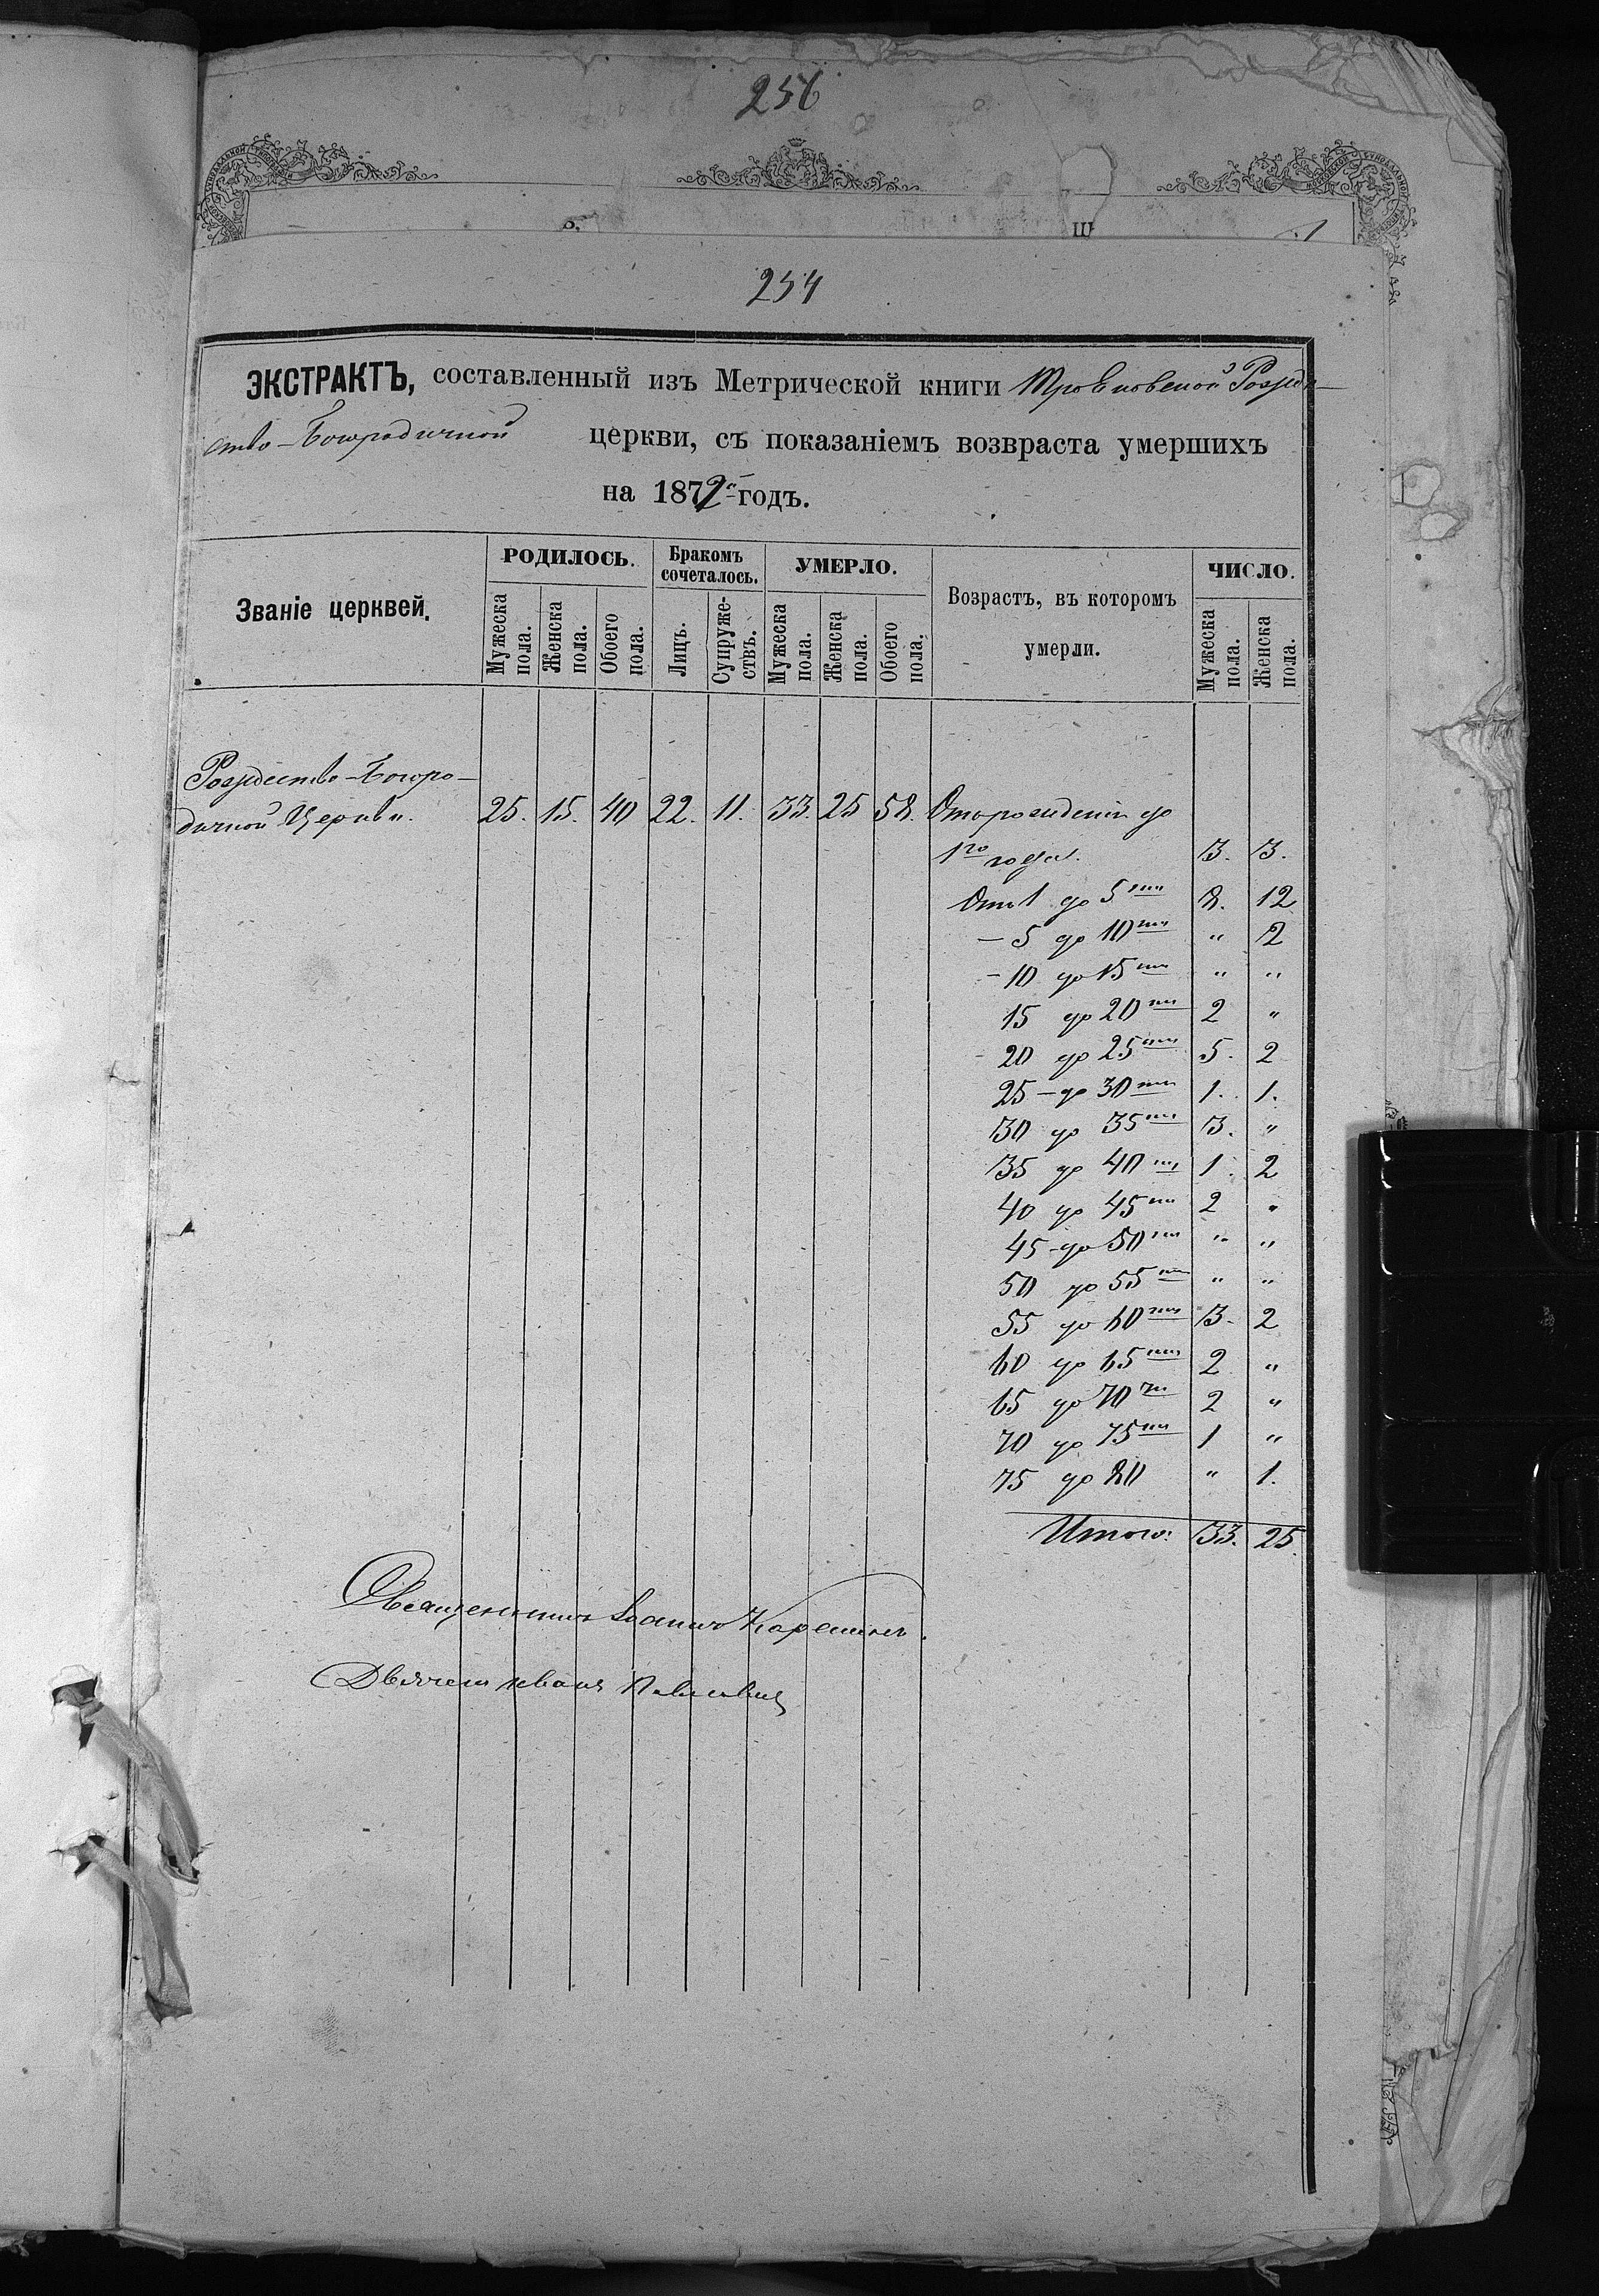 256
254
ЭКСТРАКТЪ, составленный изъ Метрической книги Рожде-
ство-Богородичной церкви, съ показаніемъ возвраста умершихъ
на 1872й годъ.
Званіе церквей.
РОДИЛОСЬ.
Мужеска пола.
Женска пола.
Обоего пола.
Бракомъ сочеталось.
Лицъ.
Супруже-ствъ.
УМЕРЛО.
Мужеска пола.
Женска пола.
Обоего пола.
Возрастъ, въ которомъ
умерли.
ЧИСЛО.
Мужеска пола.
Женска пола.
Рождество-Богоро-
дичной Церкви. 25. 15. 40 22. 11. 33. 25 58. Отъ рожденія до
1го года. 3. 3.
Отъ 1 до 5ти 8. 12
- 5 до 10ти " 2
- 10 до 15ти " "
15 до 20ти 2 "
- 20 до 25ти 5. 2
25 - до 30ти 1. 1.
30 до 35ти 3. "
35 до 40ти 1. 2
40 до 45ти 2 "
45 - до 50ти " "
50 до 55ти " "
55 до 60ти 3. 2
60 до 65ти 2 "
65 до 70ти 2 "
70 до 75ти 1 "
75 до 80 " 1.
Итого: 33. 25.
Священникъ Іоаннъ
Дьячекъ Иванъ